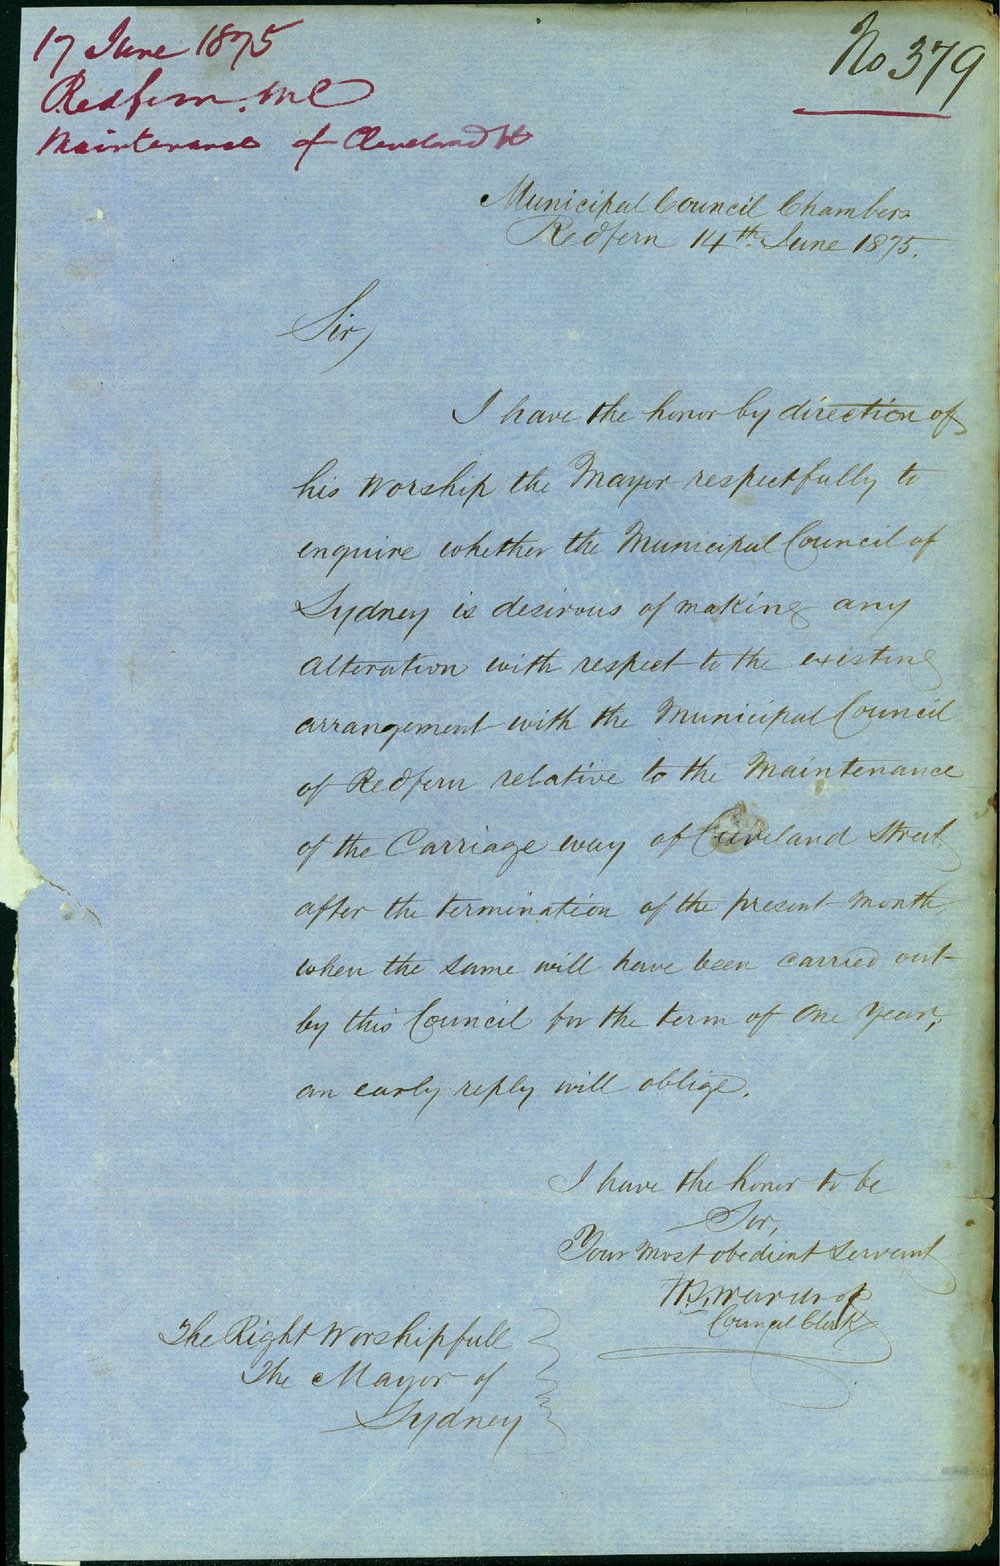 17 June 1875
Redfern. M C
Maintenance of Cleveland St
No 379
Municipal Council Chambers
Redfern 14th June 1875.
Sir,
I have the honor by direction of
his Worship the Mayor respectfully to
enquire whether the Municipal Council of
Sydney is desirous of making any
alteration with respect to the existing
arrangement with the Municipal Council
of Redfern relative to the Maintenance
of the Carriage way of Cleveland Street
after the termination of the present month,
when the same will have been carried out
by this Council for the term of One Year,
an early reply will oblige.
I have the honor to be
Sir,
Your most obedient Servant
Council Clerk
The Right Worshipfull
The Mayor of
Sydney